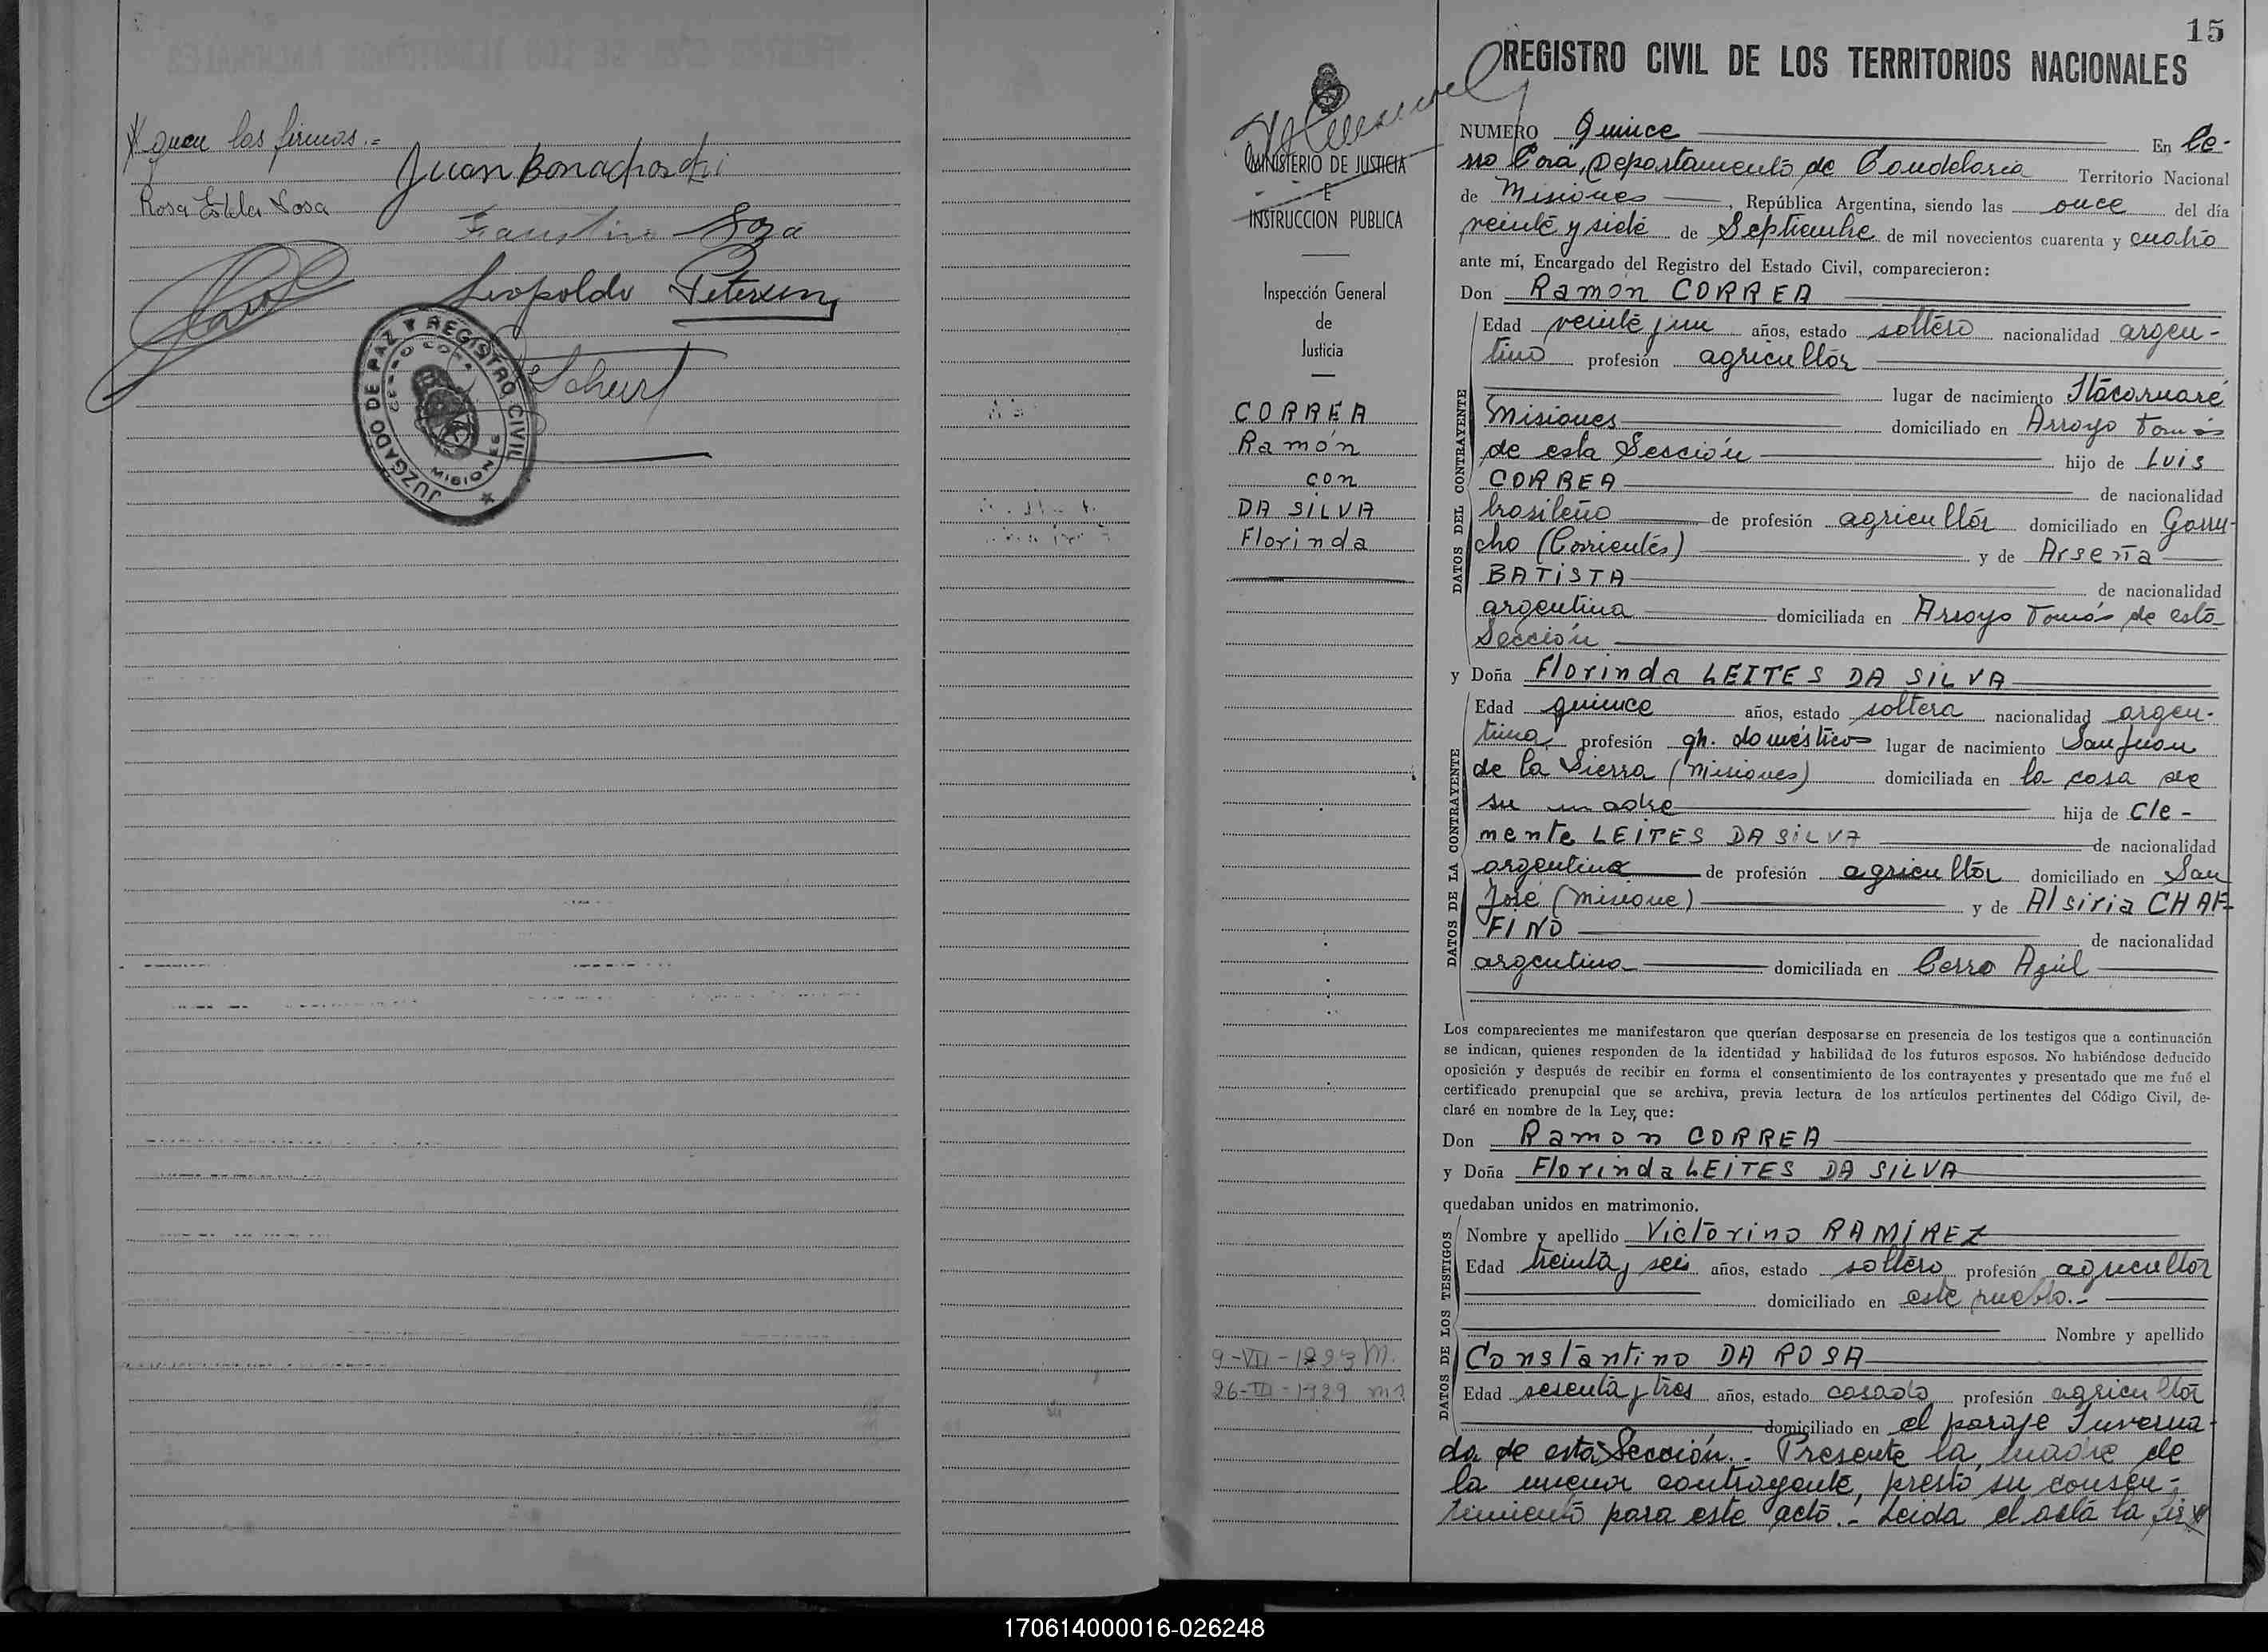 quen las firmas.=
Juan Bonachoski
Rosa Estela Sosa
Faustino Sosa
Leopoldo Petersen
JUZGADO DE PAZ Y REGISTRO CIVIL
MISIONES
15
REGISTRO CIVIL DE LOS TERRITORIOS NACIONALES
MINISTERIO DE JUSTICIA
E
INSTRUCCION PUBLICA
Inspección General
de
Justicia
CORREA
Ramón
con
DA SILVA
Florinda
9-VII-1923 M.
26-III-1929
NUMERO Quince En Ce-
rro Corá, Departamento de Candelaria Territorio Nacional
de Misiones, República Argentina, siendo las once del día
veinte y siete de Septiembre de mil novecientos cuarenta y cuatro
ante mí, Encargado del Registro del Estado Civil, comparecieron:
Don Ramon CORREA
DATOS DEL CONTRAYENTE
Edad veinte y un años, estado soltero nacionalidad argen-
tino profesión agricultor
lugar de nacimiento Itacaruaré
Misiones domiciliado en Arroyo Tomás
de esta Sección hijo de Luis
CORREA de nacionalidad
brasileño de profesión agricultor domiciliado en Garru-
cho (Corrientes) y de Arsenia
BATISTA de nacionalidad
argentina domiciliada en Arroyo Tomás de esta
Sección
y Doña Florinda LEITES DA SILVA
DATOS DE LA CONTRAYENTE
Edad quince años, estado soltera nacionalidad argen-
tina profesión qh. domésticos lugar de nacimiento San Juan
de la Sierra (Misiones) domiciliada en la casa de
su madre hija de Cle-
mente LEITES DA SILVA de nacionalidad
argentina de profesión agricultor domiciliado en San
José (Misione) y de Alsiria CHAF-
FINO de nacionalidad
argentina domiciliada en Cerro Azúl
Los comparecientes me manifestaron que querían desposarse en presencia de los testigos que a continuación
se indican, quienes responden de la identidad y habilidad de los futuros esposos. No habiéndose deducido
oposición y después de recibir en forma el consentimiento de los contrayentes y presentado que me fué el
certificado prenupcial que se archiva, previa lectura de los artículos pertinentes del Código Civil, de-
claré en nombre de la Ley, que:
Don Ramon CORREA
y Doña Florinda LEITES DA SILVA
quedaban unidos en matrimonio.
DATOS DE LOS TESTIGOS
Nombre y apellido Victorino RAMÍREZ
Edad treinta y seis años, estado soltero profesión agricultor
domiciliado en este pueblo.-
Nombre y apellido
Constantino DA ROSA
Edad sesenta y tres años, estado casado profesión agricultor
domiciliado en el paraje Inverna-
da de esta Sección.- Presente la madre de
la menor contrayente, prestó su consen-
timiento para este acto.- Leida el acta la
170614000016-026248